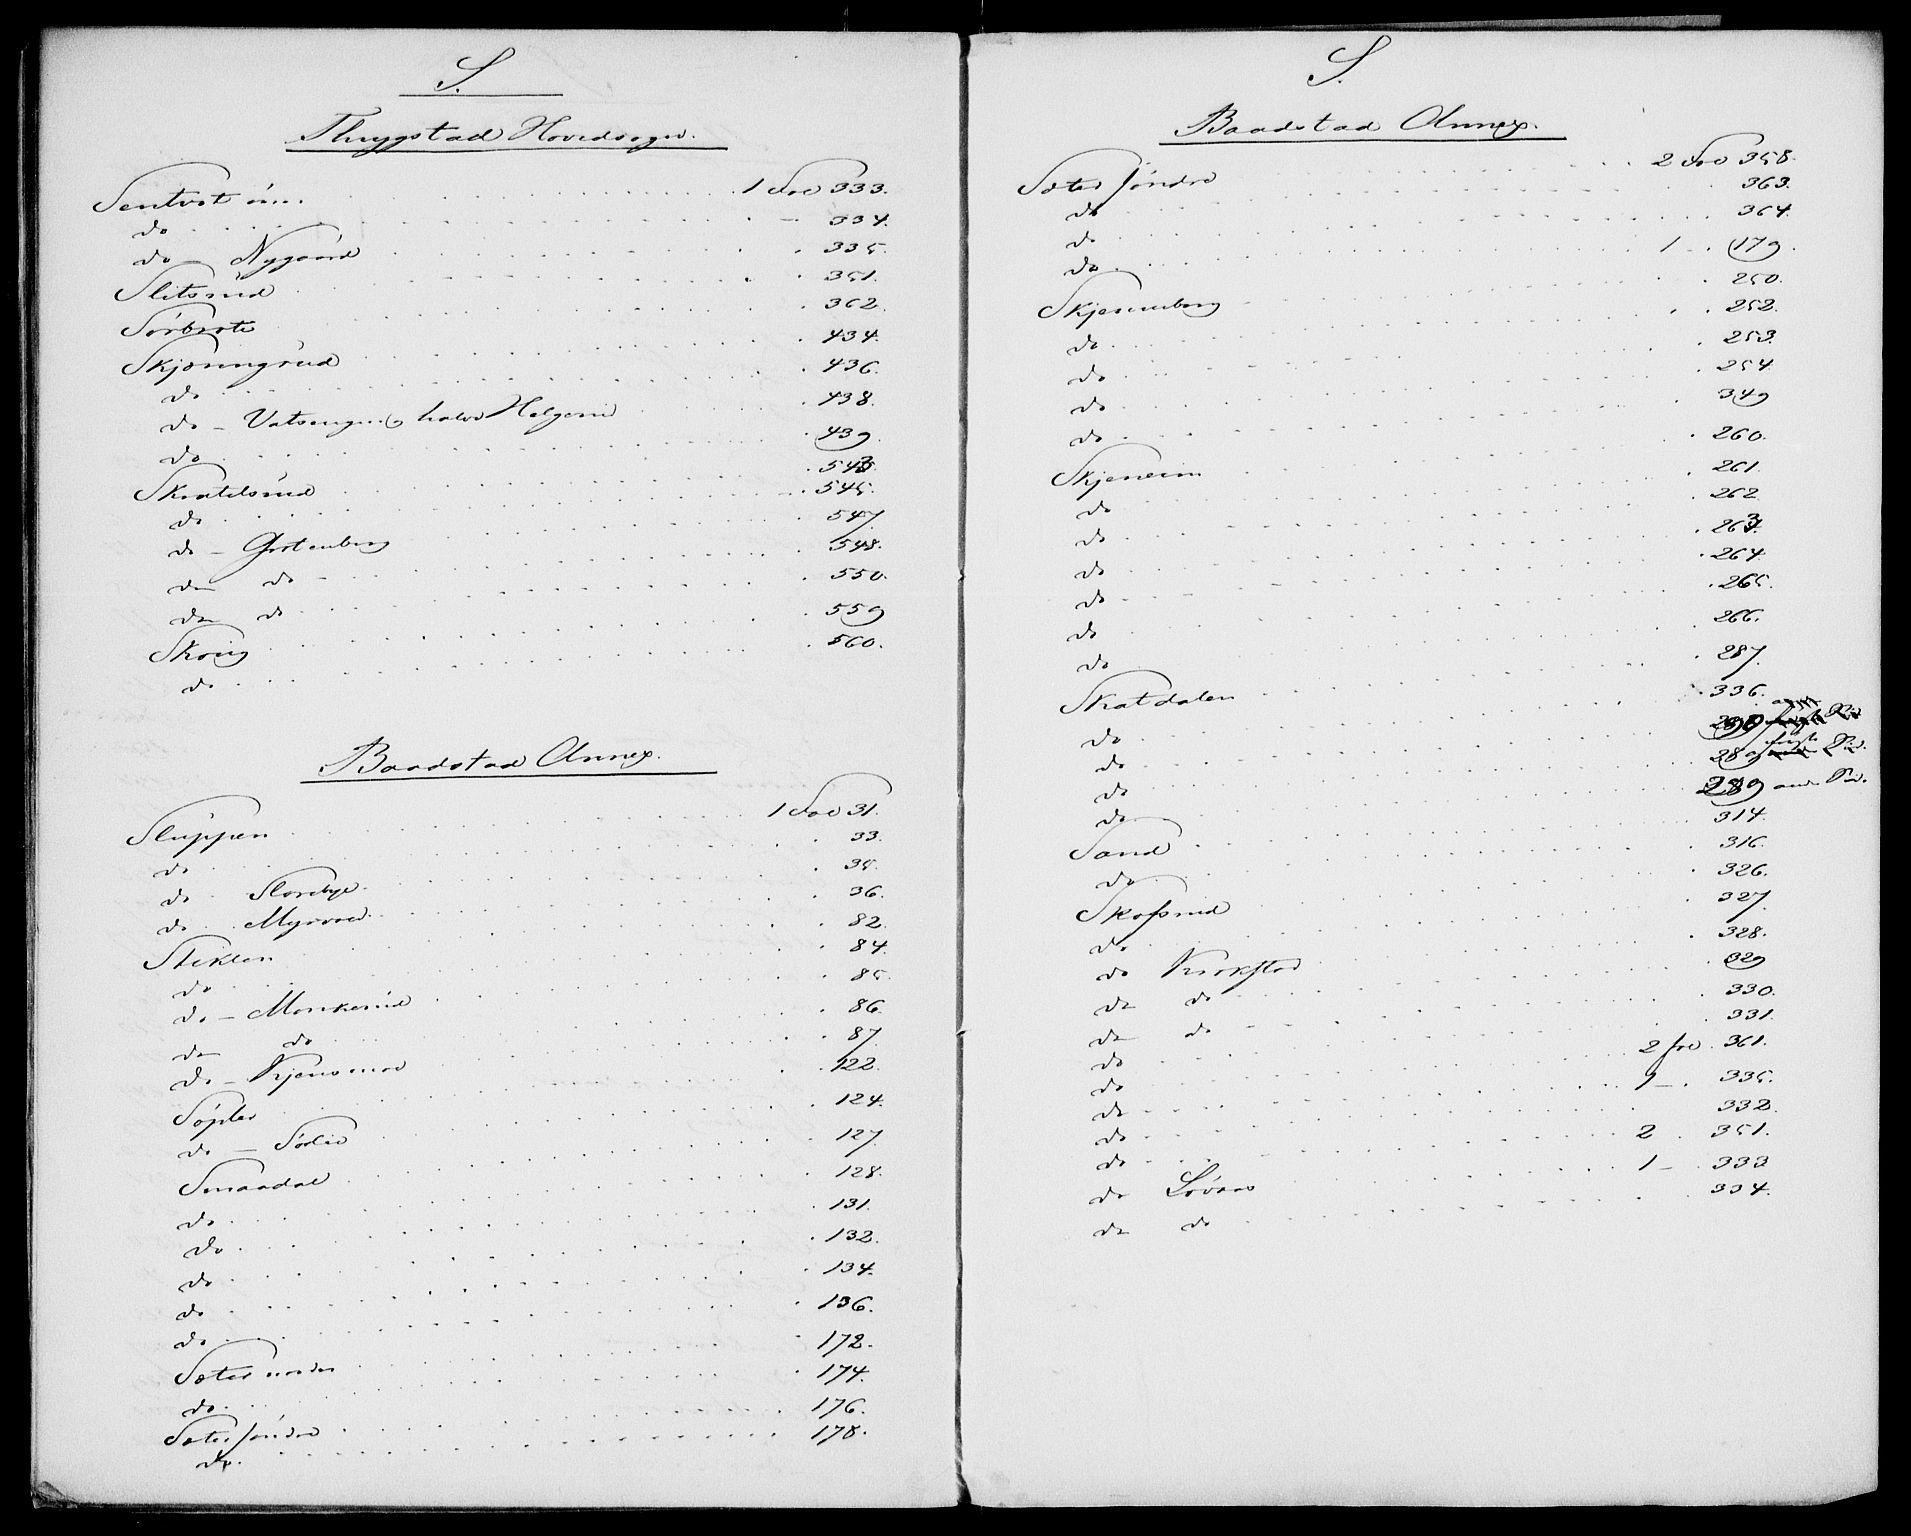 S.
Thrygstad Hovedsogn.
Sentvet . . . 1 333.
do . . . 334.
do - Nygaard . . . 335.
Slitsrud . . . 351.
Sørbrote . . . 362.
Skjønnigrud . . . 434.
do . . . 436.
do - halve Helgerud . . . 438.
do . . . 439.
Skratelsrud . . . 543.
do . . . 545.
do - Grotenberg . . . 547.
do do - . . . 548.
do do . . . 550.
Skoug . . . 559
do . . . 560.
Baadstad Annex.
Sluppen . . . 1 31.
do . . . 33.
do . Slorebye . . . 35.
do . Myrvold . . . 36.
Stiklen . . . 82.
do . . . 84.
do - Monkerud . . . 85.
do do . . . 86.
do - Kjensmoe . . . 87.
Sopler . . . 122.
do - Sørlie . . . 124.
Smaadal . . . 127.
do . . . 128.
do . . . 131.
do . . . 132.
do . . . 134.
do . . . 136.
Sæter nordre . . . 172.
do . . . 174.
Sæter søndre . . . 176.
do . . . 178.
S.
Baadstad Annex.
Sæter søndre . . . 2 358.
do . . . 363.
do . . . 364.
do . . . 1 - 179.
Skjenneberg . . . 250.
do . . . 252.
do . . . 253.
do . . . 254.
do . . . 349
Skjeneim . . . 260.
do . . . 261.
do . . . 262.
do . . . 263.
do . . . 264.
do . . . 265.
do . . . 266.
Skatdalen . . . 287.
do . . . 336.
do . . .
do . . . 289
do . . . 289
Sand . . . 314.
do . . . 316.
Skofsrud . . . 326.
do . . . 327.
do Krokstad . . . 328.
do do . . . 329
do do . . . 330.
do . . . 331.
do . . . 2 361.
do . . . 1 - 335.
do . . . 332.
do . . . 2 . 351.
do Løvaas . . . 1 - 333
do do . . . 334.